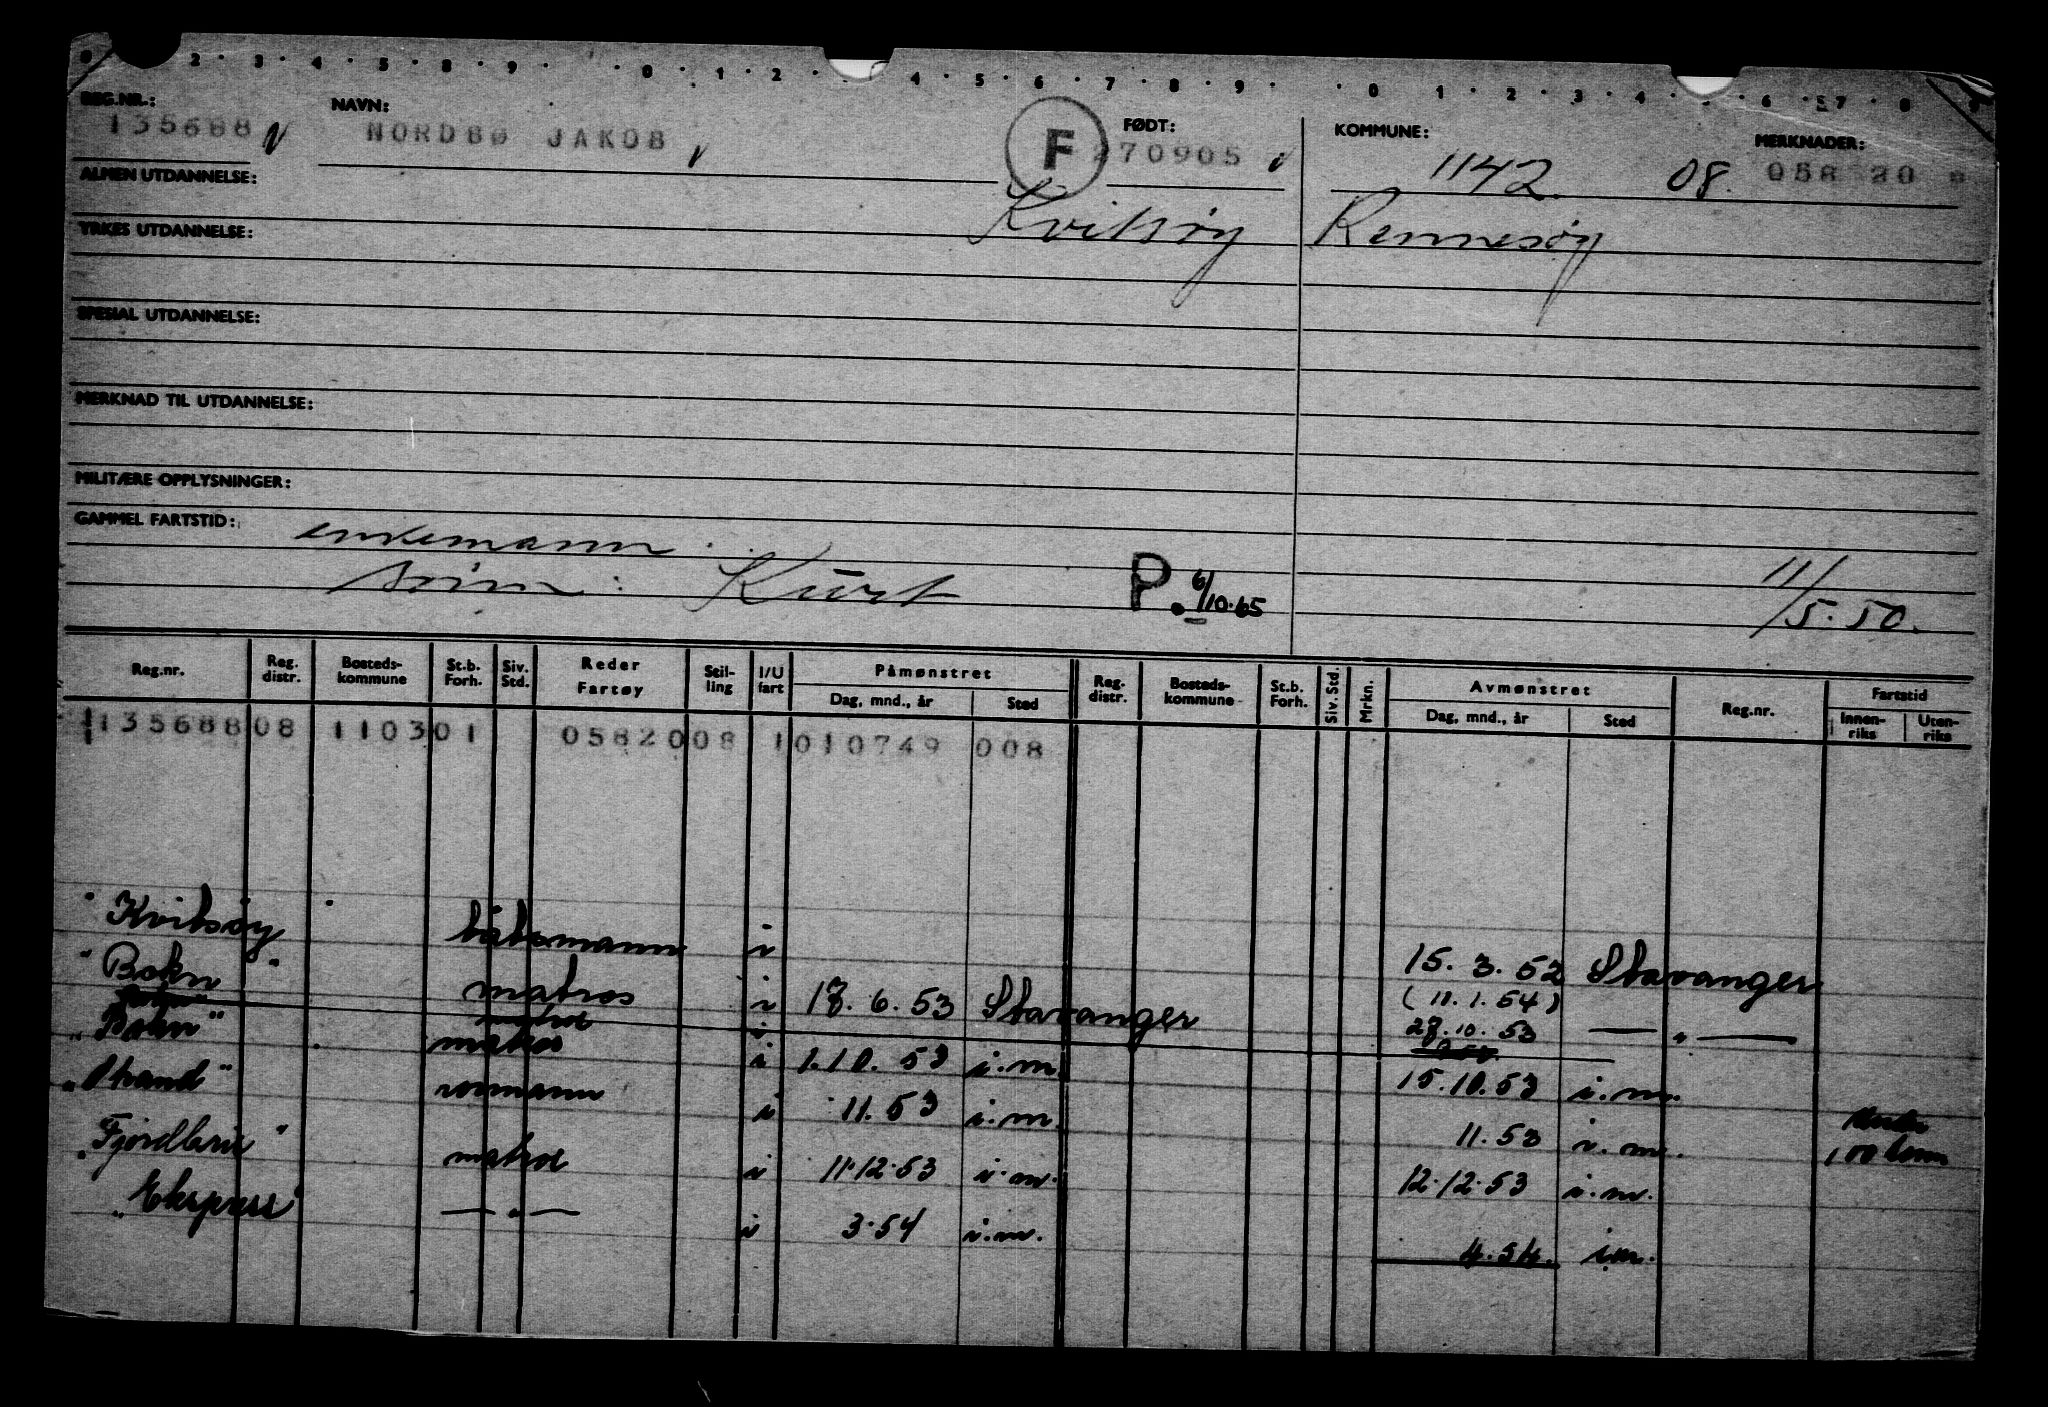 0 2 · 3 · 4 · 5 · 8 · 9 · · 0 · 1 · 2 · 4 · 5 · 6 · 7 · 8 · 9 · · 0 1 · 2 · 3 · 4 · 6 · 7 · 8 9
REG.NR.: NAVN: FØDT: KOMMUNE: MERKNADER:
135688 NORDBØ JAKOB F 270905 1142. 08. 058 20 8
ALMEN UTDANNELSE:
Kvitsøy Rennesøy
YRKES UTDANNELSE:
SPESIAL UTDANNELSE:
MERKNAD TIL UTDANNELSE:
MILITÆRE OPPLYSNINGER:
GAMMEL FARTSTID:
enkemann
sønn: Kurt P. 6/10.65 11/5.50.
Reg.nr. Reg. distr. Bosteds-kommune St.b. Forh. Siv. Std. Reder Fartøy Stil-ling I/U fart Påmønstret Dag, mnd., år Sted Reg. distr. Bosteds-kommune St.b. Forh. Siv. Std. Mrkn. Avmønstret Dag, mnd., år Sted Reg.nr. Fartstid Innen-riks Uten-riks
135688 08 1103 01 05820 08 1 010749 008
"Kvitsøy" båtsmann i 15.3.52 Stavanger
"Bokn" matros i 18.6.53 Stavanger (11.1.54)
28.10.53 — " —
"Bokn" matros i 1.10.53 i.m. 15.10.53 i.m.
"Strand" rormann i 11.53 i.m. 11.53 i.m. under 100 tonn
"Fjordbris" matros i 11.12.53 i.m. 12.12.53 i.m.
"Ekspress" — " — i 3.54 i.m. 4.54. i.m.